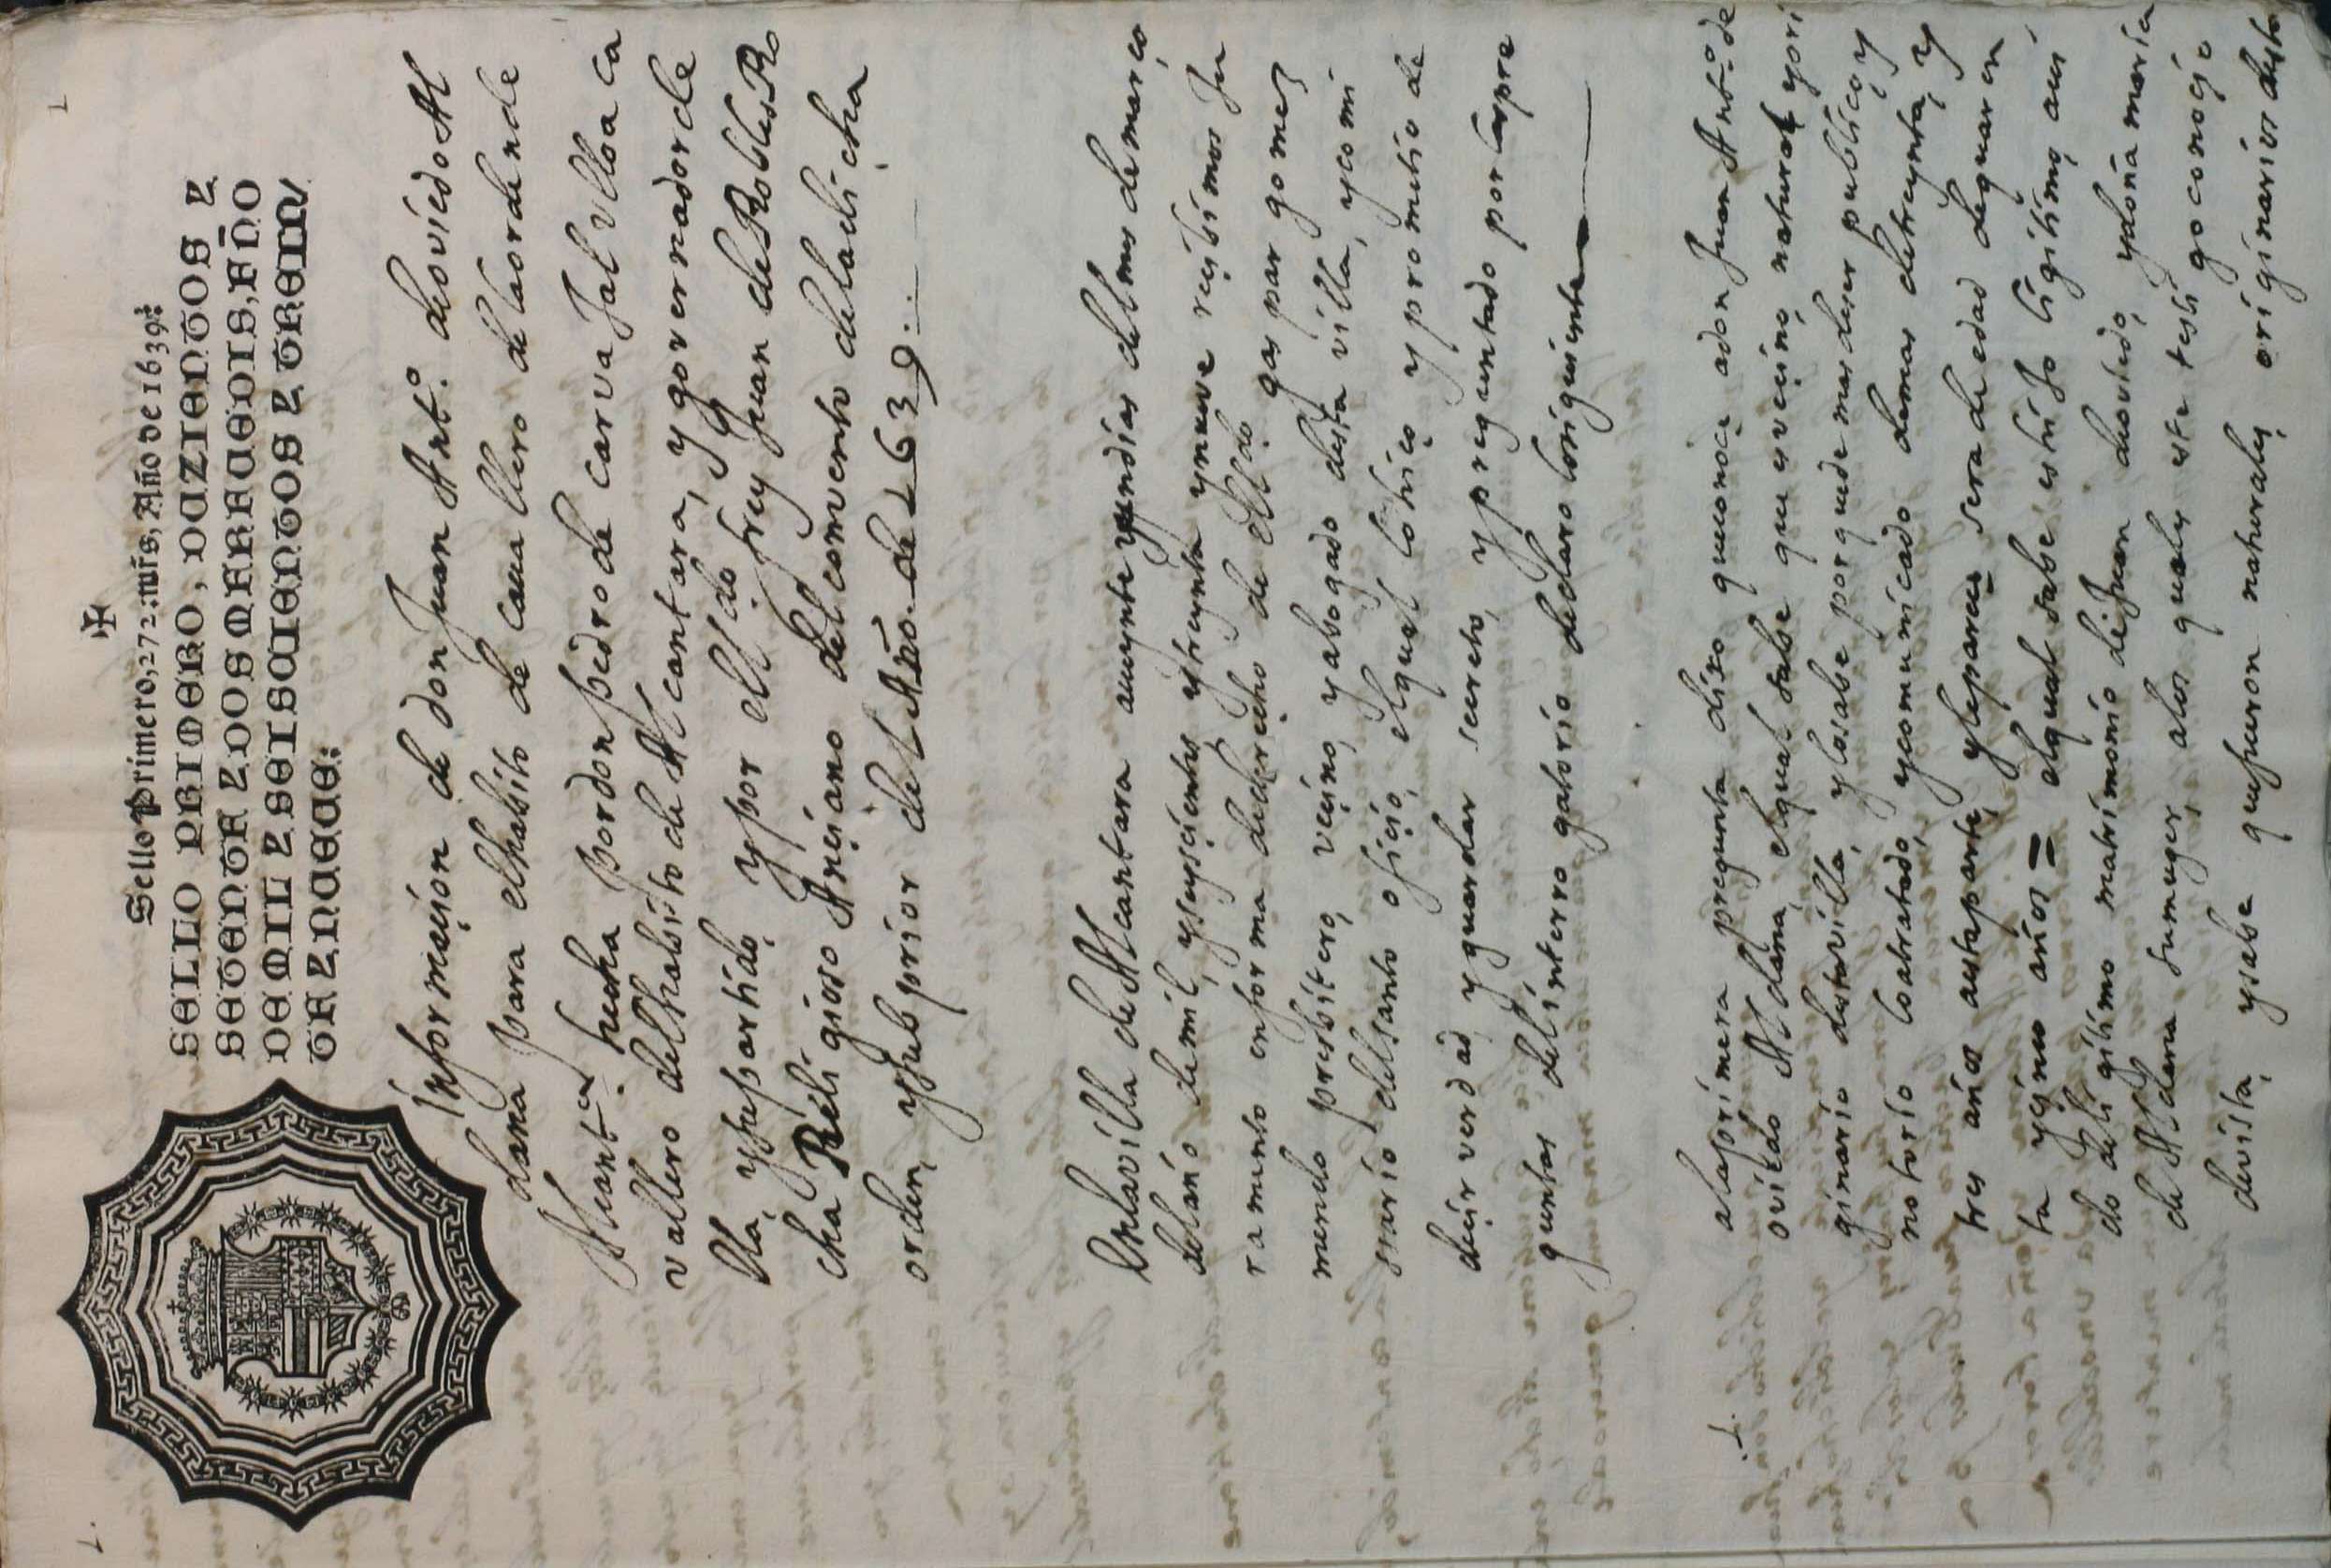 1
1.
✠
Sello Primero, 272: mrs, Año de 1639:
SELLO PRIMERO, DOZIENTOS Y
SETENTA Y DOS MARAUEDIS, AÑO
DE MIL Y SEISCIENTOS Y TREIN
TA Y NUEUE:
Informaçion de don Juan Antº. de oviedo Al
dana para el habito de cauallero de la orden de
Alcantª. hecha por don pedro de carvaJal vlloa ca
vallero del habito de Alcantara, y governador de
lla, y su partido, y por el ldo. frey Juan de Robles Ro
cha Religioso Ançiano del convento de la dicha
orden, y sub prior del Año. de 1639.
En la villa de Alcantara a veynte y un dias del mes de março
del año de mil, y seysçientos, y treynta y nueve resçibimos Ju
ramento en forma de derecho de el ldo gaspar gomez
mendo presbitero, veçino, y abogado desta villa, y comi
ssario del santo ofiçio, el qual lo hiço y prometio de
deçir verdad y guardar secreto, y preguntado por las pre
guntas del interrogatorio declaro lo siguiente
1. a la primera pregunta dixo que conoçe a don Juan Antº. de
oviedo Aldana, el qual sabe que es veçino, natural y ori
ginario desta villa, y lo sabe porque demas de ser publico, y
notorio lo a tratado, y comunicado demas de treynta, y
tres años a esta parte, y le pareçe sera de edad de quaren
ta y çinco años = el qual sabe es hijo ligitimo, avi
do de ligitimo matrimonio de Juan de oviedo, y doña maria
de Aldana su muger, a los quales este testigo conoçio
de vista, y sabe que fueron naturales, originarios desta